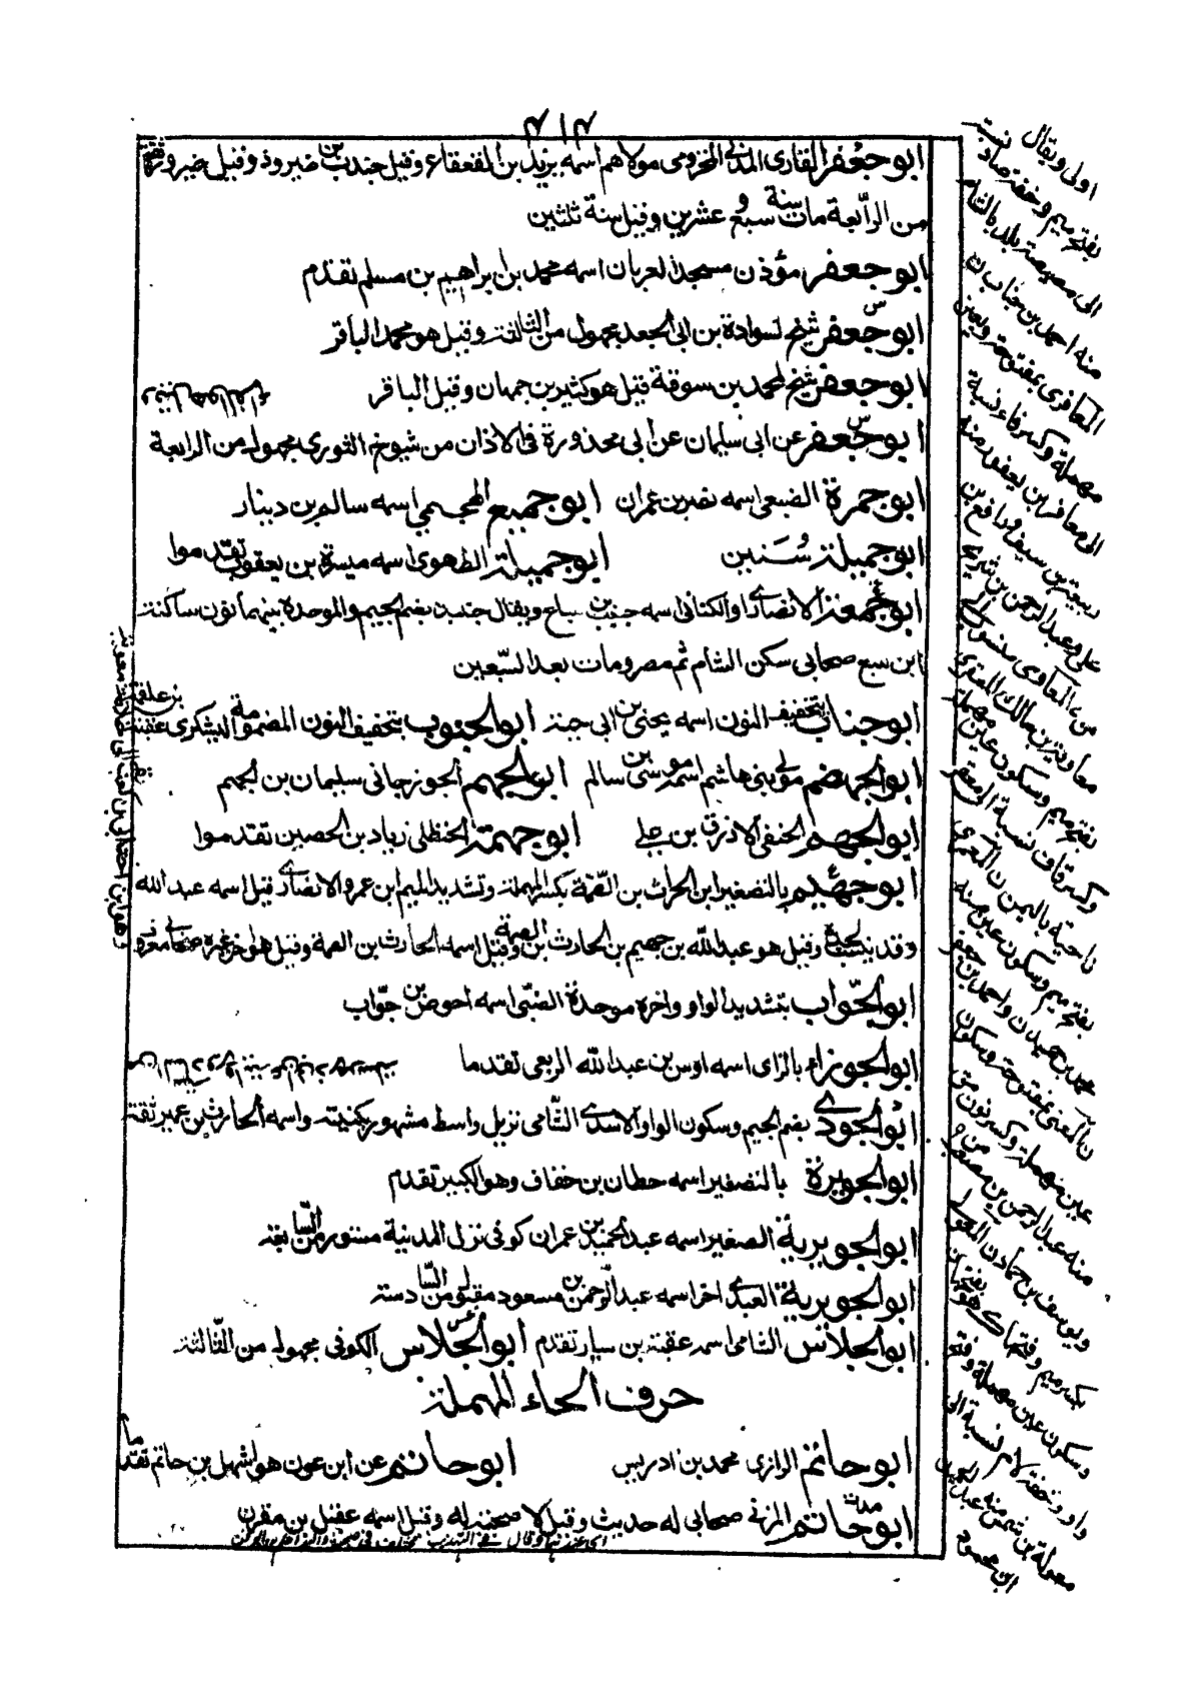 ٣١٣
ابو جعفر القارى المدنى المخزومى مولاهم اسمه يزيد بن القعقاع وقيل جندب بن فيروز وقيل فيروز ثقة
من الرابعة مات سنة سبع وعشرين وقيل سنة ثلثين
ابو جعفر مؤذن مسجد العريان اسمه محمد بن ابراهيم بن مسلم تقدم
ابو جعفر شيخ لسوادة بن ابى الجعد مجهول من الثالثة وقيل هو محمد الباقر
ابو جعفر شيخ لمحمد بن سوقة قيل هو كثير بن جمهان وقيل الباقر
ابو جعفر عن ابى سليمان عن ابى محذورة فى الاذان من شيوخ الثورى مجهول من الرابعة
ابو جمرة الضبعى اسمه نصر بن عمران ابو جميع الهجيمي اسمه سالم بن دينار
ابو جميلة سُنَين ابو جميلة الطهوى اسمه ميسرة بن يعقوب تقدموا
ابو جمعة الانصارى او الكنانى اسمه حبيب بن سباع ويقال جنبذ بضم الجيم والموحدة بينهما نون ساكنة
ابن سبع صحابى سكن الشام ثم مصر ومات بعد السبعين
ابو جناب بتخفيف النون اسمه يحيى بن ابى حية ابو الجنوب بتخفيف النون المضمومة اليشكرى عقبة بن علقمة
ابو الجهضم مولى بنى هاشم اسمه موسى بن سالم ابو الجهم الجوزجانى سليمان بن الجهم
ابو الجهم الحنفى الازرق بن على ابو جهمة الحنظلى زياد بن الحصين تقدموا
ابو جهيم بالتصغير ابن الحارث بن الصمة بكسر المهملة وتشديد الميم ابن عمرو الانصارى قيل اسمه عبد الله
وقد ينسب لجده وقيل هو عبد الله بن جهيم بن الحارث بن الصمة وقيل اسمه الحارث بن الصمة وقيل هو اخر غيره صحابى معروف
ابو الجوّاب بتشديد الواو واخره موحدة الضبى اسمه احوص بن جوّاب
ابو الجوزاء بالزاى اسمه اوس بن عبد الله الربعى تقدما
ابو الجودى بضم الجيم وسكون الواو الاسدى الشامى نزيل واسط مشهور بكنيته واسمه الحارث بن عمير ثقة
ابو الجويرة بالتصغير اسمه حطان بن خفاف وهو الكبير تقدم
ابو الجويرية الصغير اسمه عبد الحميد بن عمران كوفى نزل المدينة مستور من السابعة
ابو الجويرية العبدى اخر اسمه عبد الرحمن بن مسعود مقبول من السادسة
ابو الجلاس الشامى اسمه عقبة بن سيار تقدم ابو الجلاس الكوفى مجهول من الثالثة
حرف الحاء المهملة
ابو حاتم الرازى محمد بن ادريس ابو حاتم عن ابن عون هو اشهل بن حاتم تقدما
ابو حاتم المزنى صحابى له حديث وقيل لا صحبة له وقيل اسمه عقيل بن مقرن
اولى ويقال
بفتح ميم وخفة صاد نسبة
الى مصيصة بلد بالشام
منه احمد بن جناب
المعافرى بمفتوحة وبعين
مهملة وكسر فاء نسبة
الى معافر بن يعفر منه
ربيعة بن سيف ورافع بن
على وعبد الرحمن بن شريح
معاوية بن مالك المعقرى
بفتح ميم وسكون عين مهملة
وكسر قاف نسبة الى معقر
ناحية باليمن
بفتح ميم وسكون عين منه
محمد بن حميد واحمد بن جعفر
المعنى بمفتوحة وسكون
عين مهملة وكسر نون
منه عبد الرحمن بن مصعب
ويوسف بن حماد المعولى
بكسر ميم وفتحها
وسكون عين مهملة وفتح
واو وخفة لام نسبة الى
معولة بن شمس منه
ابن محمود